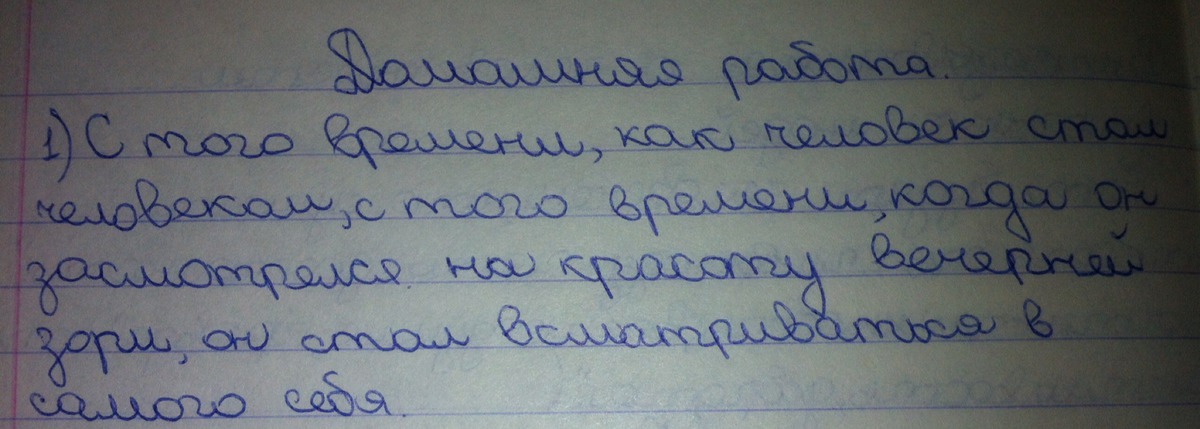 Домашняя работа.
1) С того времени, как человек стал
человеком, с того времени, когда он
засмотрелся на красоту вечерней
зори, он стал всматриваться в
самого себя.